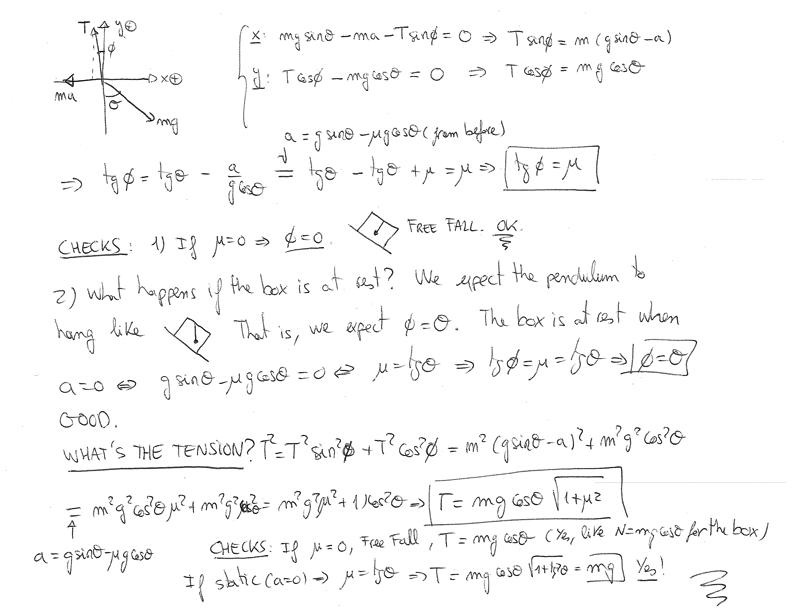 T y⊕
ϕ
x⊕
ma
θ
mg
x: mg sinθ - ma - T sinϕ = 0 ⇒ T sinϕ = m (g sinθ - a)
y: T cosϕ - mg cosθ = 0 ⇒ T cosϕ = mg cosθ
a = g sinθ - μg cosθ (from before)
⇒ tgϕ = tgθ - a/(g cosθ) = tgθ - tgθ + μ = μ ⇒ tgϕ = μ
CHECKS: 1) If μ=0 ⇒ ϕ=0. FREE FALL. OK.
2) What happens if the box is at rest? We expect the pendulum to
hang like That is, we expect ϕ=θ. The box is at rest when
a=0 ⇔ g sinθ - μg cosθ = 0 ⇔ μ = tgθ ⇒ tgϕ = μ = tgθ ⇒ ϕ=θ
GOOD.
WHAT'S THE TENSION? T² = T² sin²ϕ + T² cos²ϕ = m² (g sinθ - a)² + m²g² cos²θ
= m²g² cos²θ μ² + m²g² cos²θ = m²g² (μ² + 1) cos²θ ⇒ T = mg cosθ √(1+μ²)
a = g sinθ - μg cosθ
CHECKS: If μ=0, Free Fall, T = mg cosθ (Yes, like N = mg cosθ for the box)
If static (a=0) ⇒ μ = tgθ ⇒ T = mg cosθ √(1+tg²θ) = mg Yes!